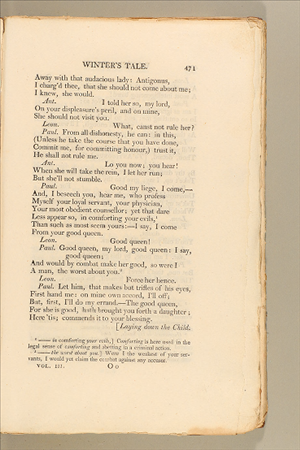 WINTER'S TALE. 471
Away with that audacious lady: Antigonus,
I charg'd thee, that she should not come about me;
I knew, she would.
Ant. I told her so, my lord,
On your displeasure's peril, and on mine,
She should not visit you.
Leon. What, canst not rule her?
Paul. From all dishonesty, he can: in this,
(Unless he take the course that you have done,
Commit me, for committing honour,) trust it,
He shall not rule me.
Ant. Lo you now; you hear!
When she will take the rein, I let her run;
But she'll not stumble.
Paul. Good my liege, I come,—
And, I beseech you, hear me, who profess
Myself your loyal servant, your physician,
Your most obedient counsellor; yet that dare
Less appear so, in comforting your evils,¹
Than such as most seem yours:—I say, I come
From your good queen.
Leon. Good queen!
Paul. Good queen, my lord, good queen: I say,
good queen;
And would by combat make her good, so were I
A man, the worst about you.²
Leon. Force her hence.
Paul. Let him, that makes but trifles of his eyes,
First hand me: on mine own accord, I'll off;
But, first, I'll do my errand.—The good queen,
For she is good, hath brought you forth a daughter;
Here 'tis; commends it to your blessing.
[Laying down the Child.
¹ —— in comforting your evils,] Comforting is here used in the
legal sense of comforting and abetting in a criminal action.
² —— the worst about you.] Were I the weakest of your ser-
vants, I would yet claim the combat against any accuser.
VOL. III. O o